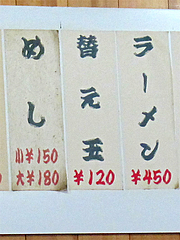 ラーメン
¥450
替元玉
¥120
めし
小¥150
大¥180